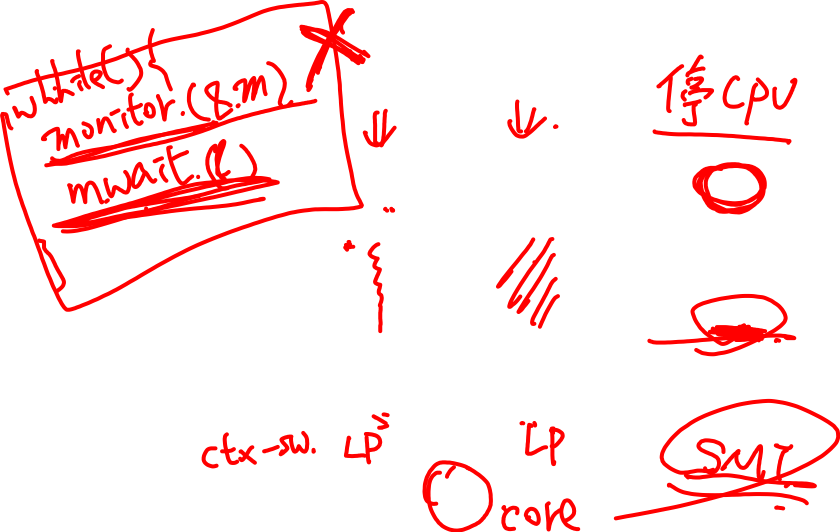 while() {
monitor.(&.m)
m.wait.()
停CPU
ctx-sw. LP
LP
core
SMT